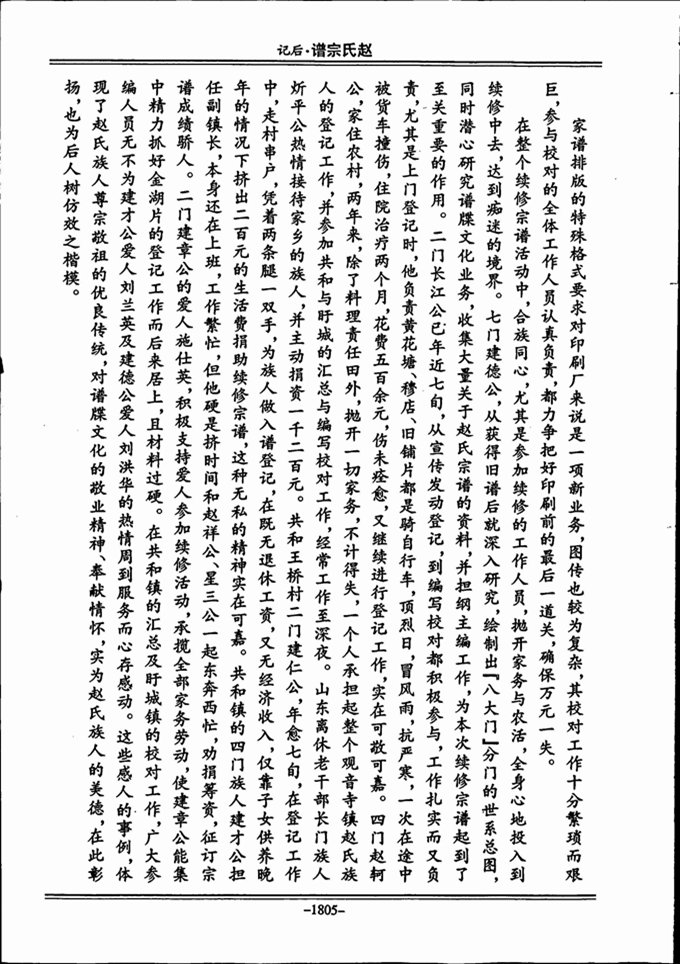 赵氏宗谱·后记
家谱排版的特殊格式要求对印刷厂来说是一项新业务，图传也较为复杂，其校对工作十分繁琐而艰
巨，参与校对的全体工作人员认真负责，都力争把好印刷前的最后一道关，确保万元一失。
在整个续修宗谱活动中，合族同心，尤其是参加续修的工作人员，抛开家务与农活，全身心地投入到
续修中去，达到痴迷的境界。七门建德公，从获得旧谱后就深入研究，绘制出『八大门』分门的世系总图，
同时潜心研究谱牒文化业务，收集大量关于赵氏宗谱的资料，并担纲主编工作，为本次续修宗谱起到了
至关重要的作用。二门长江公已年近七旬，从宣传发动登记，到编写校对都积极参与，工作扎实而又负
责，尤其是上门登记时，他负责黄花塘、穆店、旧铺片都是骑自行车，顶烈日，冒风雨，抗严寒，一次在途中
被货车撞伤，住院治疗两个月，花费五百余元，伤未痊愈，又继续进行登记工作，实在可敬可嘉。四门赵轲
公，家住农村，两年来，除了料理责任田外，抛开一切家务，不计得失，一个人承担起整个观音寺镇赵氏族
人的登记工作，并参加共和与盱城的汇总与编写校对工作，经常工作至深夜。山东离休老干部长门族人
炘平公热情接待家乡的族人，并主动捐资一千二百元。共和王桥村二门建仁公，年愈七旬，在登记工作
中，走村串户，凭着两条腿一双手，为族人做入谱登记，在既无退休工资，又无经济收入，仅靠子女供养晚
年的情况下挤出二百元的生活费捐助续修宗谱，这种无私的精神实在可嘉。共和镇的四门族人建才公担
任副镇长，本身还在上班，工作繁忙，但他硬是挤时间和赵祥公、星三公一起东奔西忙，劝捐筹资，征订宗
谱成绩骄人。二门建章公的爱人施仕英，积极支持爱人参加续修活动，承揽全部家务劳动，使建章公能集
中精力抓好金湖片的登记工作而后来居上，且材料过硬。在共和镇的汇总及盱城镇的校对工作，广大参
编人员无不为建才公爱人刘兰英及建德公爱人刘洪华的热情周到服务而心存感动。这些感人的事例，体
现了赵氏族人尊宗敬祖的优良传统，对谱牒文化的敬业精神、奉献情怀，实为赵氏族人的美德，在此彰
扬，也为后人树仿效之楷模。
-1805-